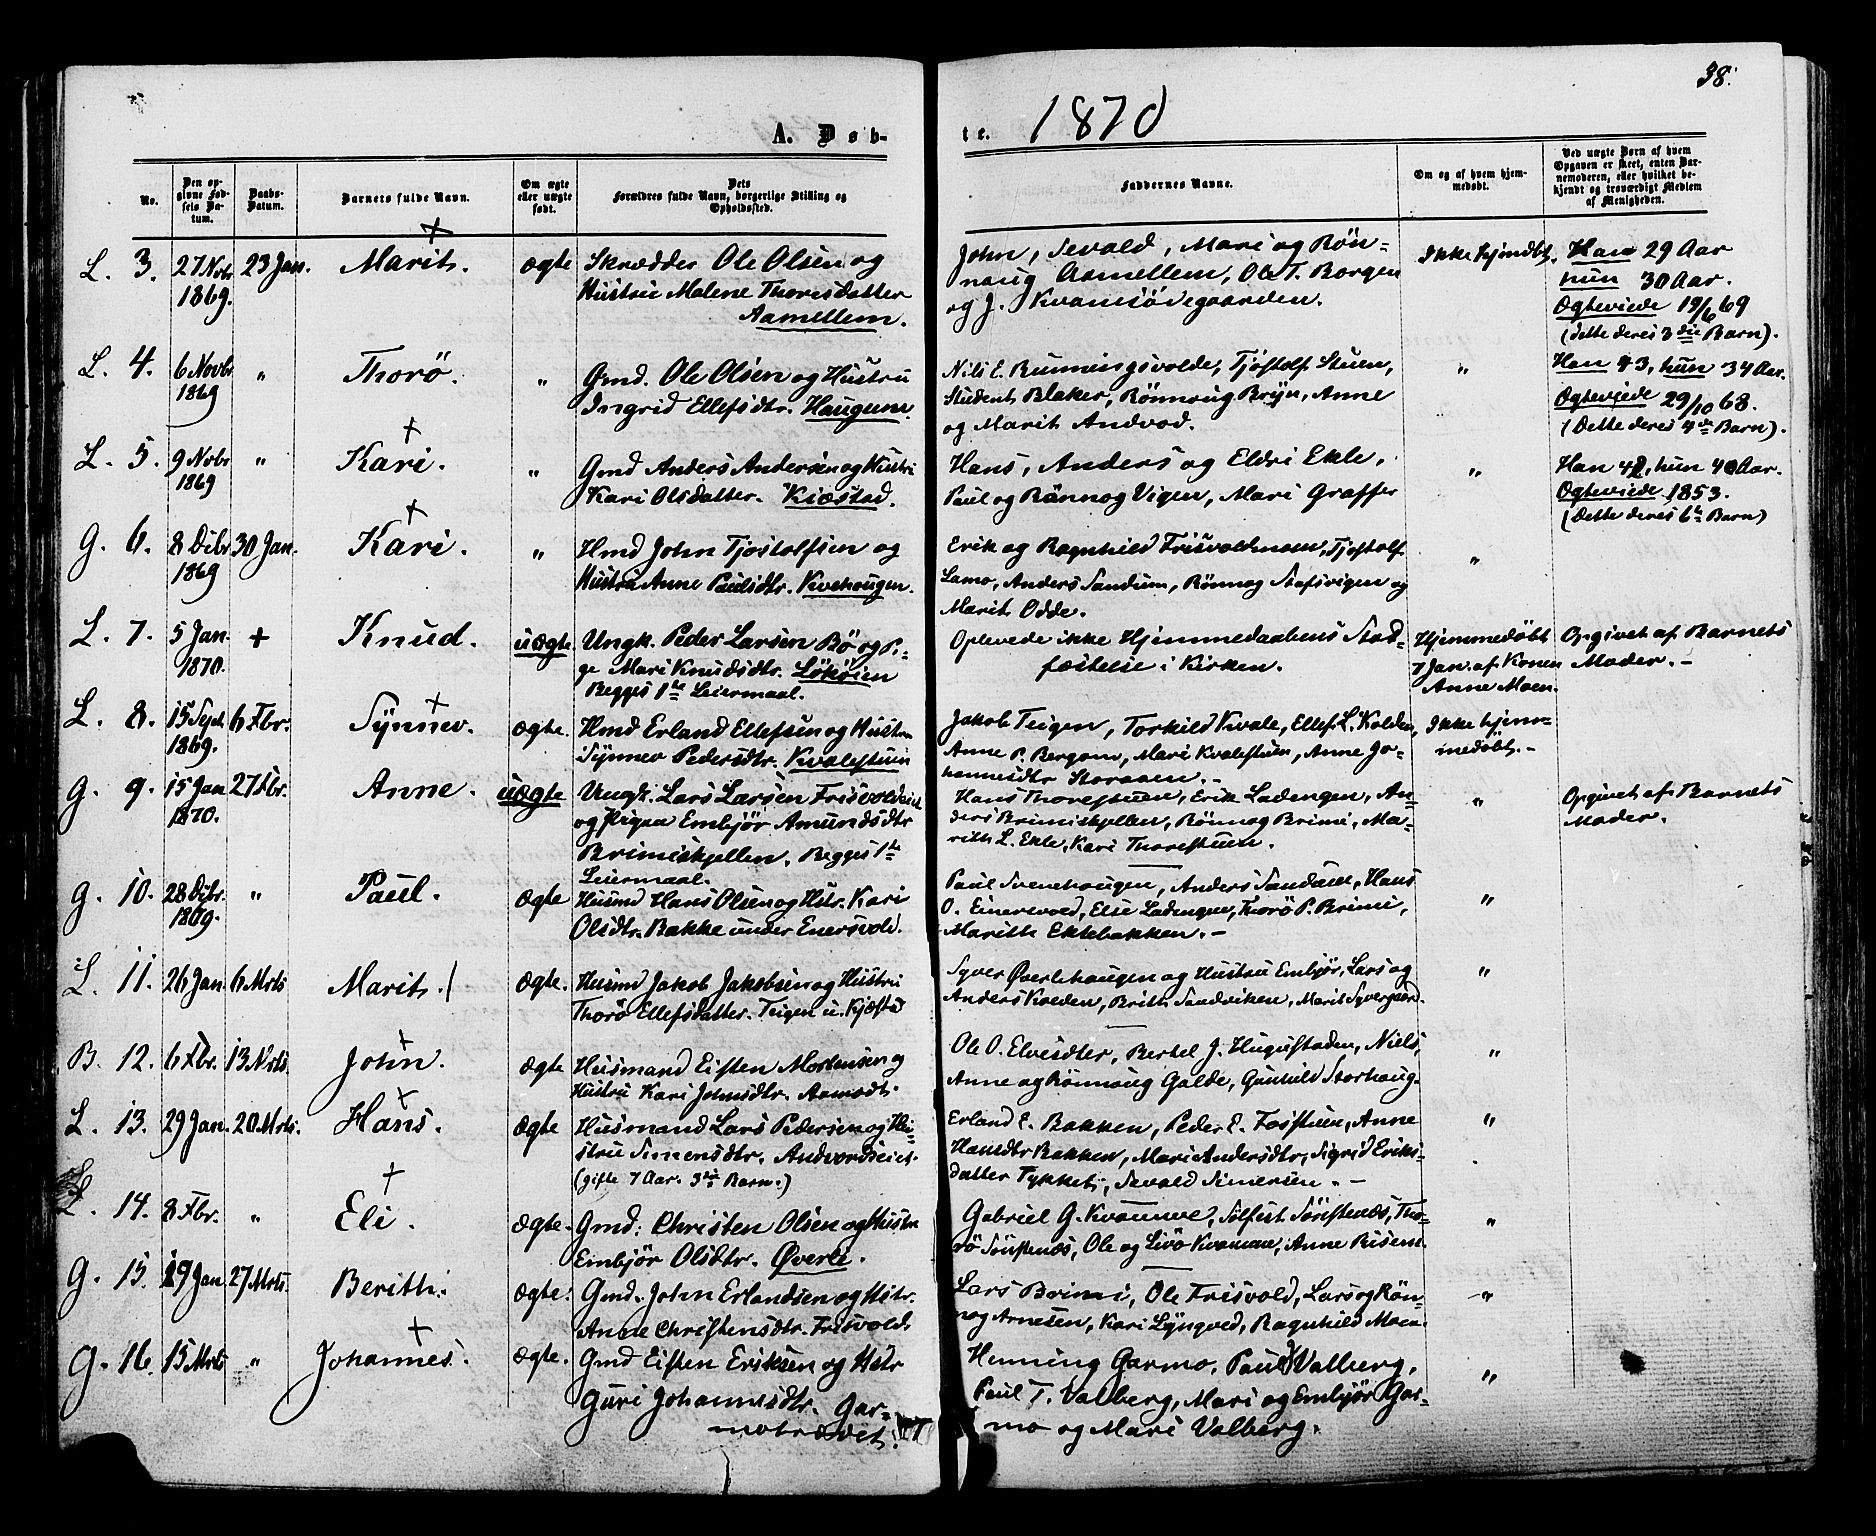 38.
A. Døb-
te. 1870
No.
Den op-
givne Fød-
sels Da-
tum.
Daabs-
Datum.
Barnets fulde Navn.
Om ægte
eller uægte
født.
Dets
Forældres fulde Navn, borgerlige Stilling og
Opholdssted.
Faddernes Navne.
Om og af hvem hjem-
medøbt.
Ved uægte Børn af hvem
Opgaven er skeet, enten Bar-
nemoderen, eller hvilket be-
kjendt og troværdigt Medlem
af Menigheden.
L. 3. 27 Nvbr 1869. 23 Jan. Marit. ægte
Skrædder Ole Olsen og
Hustru Malene Thoresdatter
Aamellem.
John, Sevald, Mari og Rön-
naug Aamellem, Ole T. Borgen
og J. Kvamsödegaarden.
Ikke hjemdbt.
Han 29 Aar
hun 30 Aar.
Ægteviede 19/6 69
(dette deres 3die Barn).
L. 4. 6 Novbr 1869 " Thorö. "
Gmd. Ole Olsen og Hustru
Ingrid Ellefsdtr. Haugum.
Nils E. Runningsvolde, Tjöstolf Stuen,
Student Blaker, Rönnoug Bryn, Anne
og Marit Andvod.
"
Han 43, hun 34 Aar.
Ægteviede 29/10 68.
(Dette deres 4de Barn).
L. 5. 9 Nvbr 1869 " Kari. "
Gmd Anders Andersen og Hustru
Kari Olsdatter. Kiæstad.
Hans, Anders og Eldri Ekle,
Paul og Rönnog Vigen, Mari Graffer
"
Han 42, hun 40 Aar.
Ægteviede 1853.
(Dette deres 6te Barn)
G. 6. 8 Dcbr 1869 30 Jan. Kari. "
Hmd John Tjostolfsen og
Hustru Anne Paulsdtr. Kvehougen.
Erik og Ragnhild Frisvoldmoen, Tjostolf
Lamo, Anders Sandum, Rönnog Stafsvigen og
Marit Odde.
"
L. 7. 5 Jan. 1870. + Knud. uægte
Ungk. Peder Larsen Bö og Pi-
ge Mari Knudsdtr. Lököien
Begges 1ste Leiermaal.
Oplevede ikke Hjemmedaabens Stad-
fæstelse i Kirken.
Hjemmedöbt
7 Jan. af Konen
Anne Moen.
Opgivet af Barnets
Moder. -
L. 8. 15 Sept 1869. 6 Fbr. Synnev. ægte.
Hmd Erland Ellefsen og Hustru
Synnev Pedersdtr. Kvalestuen
Jakob Teigen, Torkild Kvale, Ellef L. Kolden,
Anne P. Bergom, Mari Kvalestuen, Anne Jo-
hannesdtr Storaaen. -
Ikke hjem-
medöbt. -
G. 9. 15 Jan 1870. 27 Fbr. Anne. uægte
Ungk. Lars Larsen Frisvoldeiet
og Pigen Embjör Amundsdtr
Brimiskjellen. Begges 1ste
Leiermaal.
Hans Thorestuen, Erik Ladengen, An-
ders Brimiskjellen, Rönnog Brimi, Ma-
rith L. Ekle, Kari Thorestuen.
"
Opgivet af Barnets
Moder.
G. 10. 28 Dcbr. 1869. " Paul. Ægte
Husmd Hans Olsen og Hstr. Kari
Olsdtr. Bakke under Enersvold.
Paul Svenehougen, Anders Sandum, Hans
O. Einersvold, Else Ladengen, Thorö P. Brimi,
Marith Eklebakken. -
"
L. 11. 26 Jan. 6 Mrts Marit. Ægte.
Husmd Jakob Jakobsen og Hustru
Thorö Ellefsdatter. Teigen u. Kjæstad
Syver Øverlihaugen og Hustru Embjör, Lars og
Anders Kveden, Brith Sandviken, Marit Syvergaard.
"
B. 12. 6 Fbr. 13 Mrts. John. Ægte
Husmand Eisten Mortensen og
Hustru Kari Johnsdtr. Aamodt.
Ole O. Elvesæter, Bertel J. Hugustaden, Niels,
Anne og Rönnaug Galde, Gunhild Storhaug.
"
L. 13. 29 Jan. 20 Mrts. Hans. Ægte
Husmand Lars Pedersen og Hu-
stru Simensdtr. Andvordseiet.
(gifte 7 Aar. 3die Barn.)
Erland E. Bakken, Peder E. Fosstuen, Anne
Hansdtr Bakken, Mari Andersdtr, Sigrid Eriks-
datter Tykket, Sevald Simersen. -
"
L. 14. 8 Fbr. " Eli. Ægte.
Gmd. Christen Olsen og Hustru
Embjör Olsdtr. Øverli.
Gabriel G. Kvamme, Solfest Sörstenæs, Tho-
rö Sörstenæs, Ole og Livö Kvamme, Anne Risem.
"
G. 15. 29 Jan 27 Mrts. Berith. Ægte.
Gmd. John Erlandsen og Hstr.
Anne Christensdtr. Frisvold.
Lars Brimi, Ole Frisvold, Lars og Rön-
nog Arnesen, Kari Lyngved, Ragnhild Moen.
"
G. 16. 15 Mrts " Johannes. Ægte.
Gmd Eisten Eriksen og Hstr
Guri Johannesdtr. Gar-
motrædet.
Henning Garmo, Paul Valberg,
Paul T. Valberg, Mari og Embjör Gar-
mo og Mari Valberg.
"